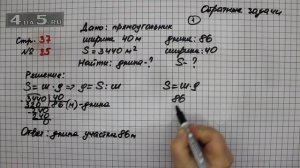 Обратные задачи
1
Стр. 37
№ 25
Дано: прямоугольник
ширина 40 м
S = 3440 м²
Найти: длина - ?
длина: 86
ширина: 40
S - ?
Решение:
S = ш · д ⇒ д = S : ш
3440 | 40
320 86 (м) - длина
240
240
0
S = ш · д
86
Ответ: длина участка 86 м